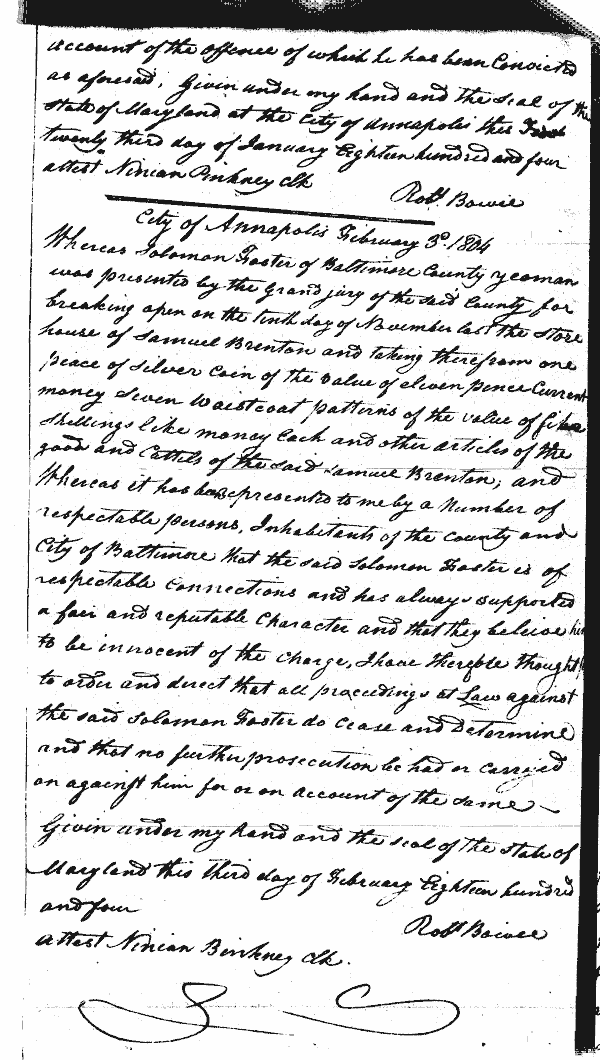 account of the offence of which he has been Convicted
as aforesaid, Givin under my hand and the Seal of the
State of Maryland at the City of Annapolis this
twenty third day of January Eighteen hundred and four
attest Ninian Pinkney Clk
Robt. Bowie
City of Annapolis February 3d. 1804
Whereas Solomon Foster of Baltimore County yeoman
was presented by the Grand jury of the said County for
breaking open on the tenth day of November last the Store
house of Samuel Brenton and taking therefrom one
peace of Silver Coin of the Value of eleven pence Current
money Seven Waistcoat patterns of the value of
shillings like money Each and other articles of the
good and Cattels of the said Samuel Brenton; and
Whereas it has been represented to me by a Number of
respectable persons, Inhabitants of the County and
City of Baltimore that the said Solomon Foster is of
respectable Connections and has always supported
a fair and reputable Character and that they beleive him
to be innocent of the Charge, I have therefore thought
to order and direct that all proceedings at Law against
the said Solomon Foster do Cease and Determine
and that no further prosecution be had or Carryed
on against him for or on account of the same
Givin under my hand and the seal of the State of
Maryland this third day of February Eighteen hundred
and four
Robt Bowie
attest Ninian Pinkney Clk.